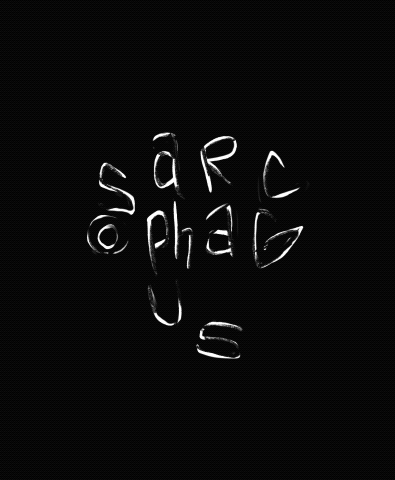 saRc
ophaG
u
s